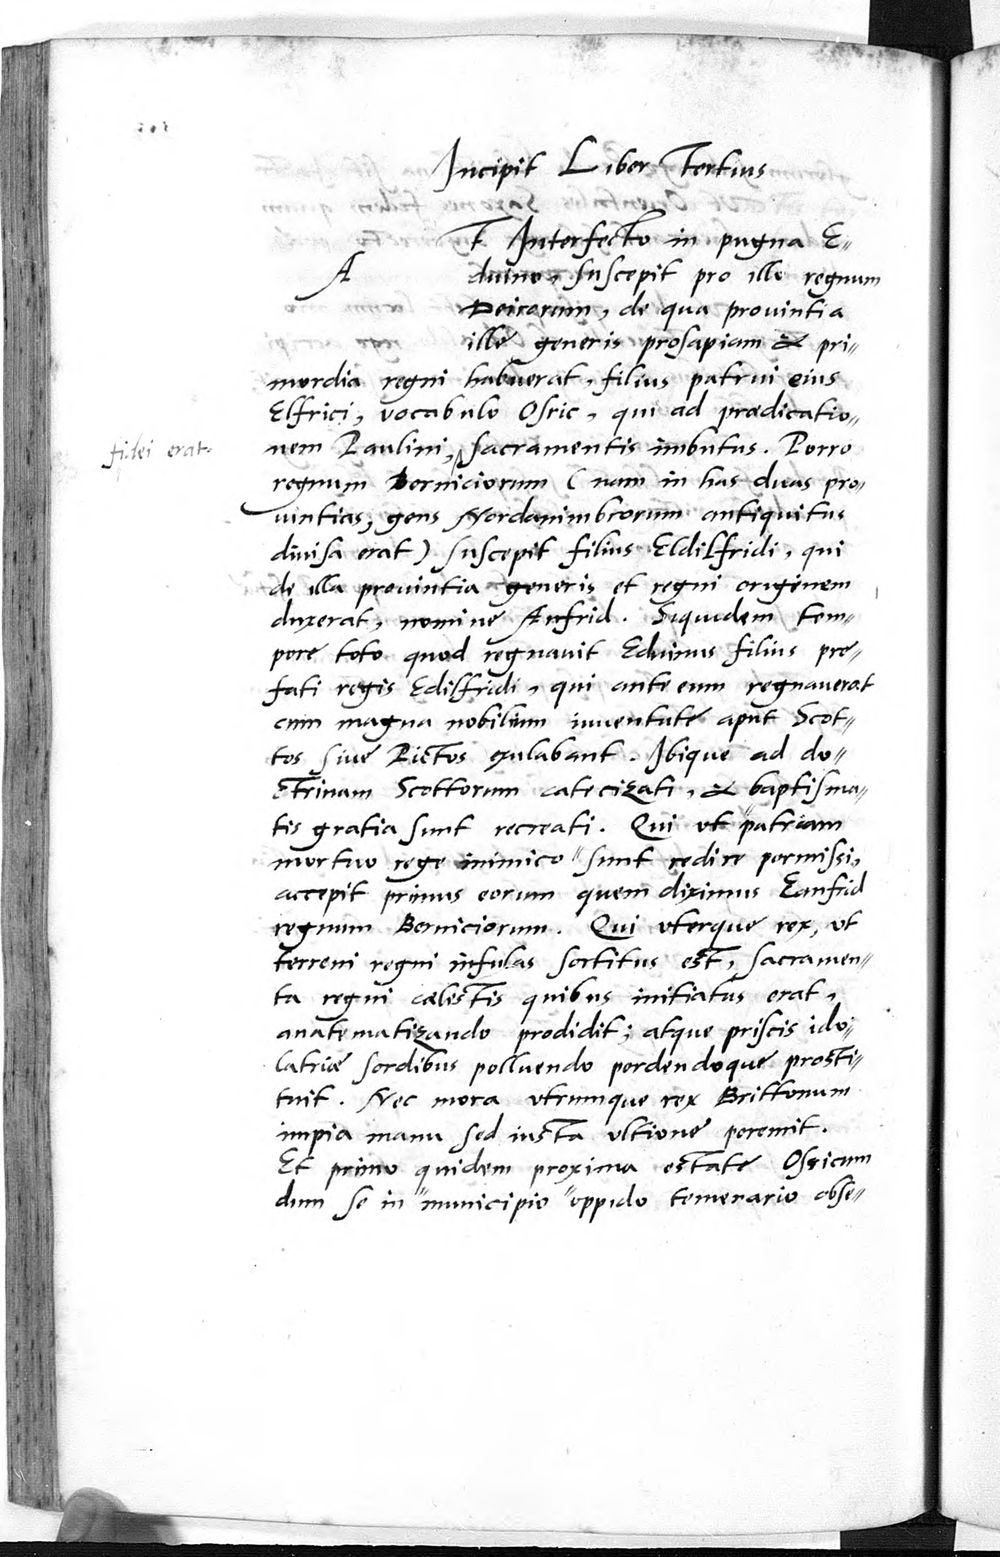 Incipit Liber Tertius
T Interfecto in pugna E„
A
duino, suscepit pro illo regnum
Deirorum, de qua prouintia
ille generis prosapiam & pri„
mordia regni habuerat, filius patrui eius
Elfrici, vocabulo Osric, qui ad prædicatio„
fidei erat.
nem Paulini, sacramentis imbutus. Porro
regnum Berniciorum (nam in has duas pro„
uintias, gens Nordanimbrorum antiquitus
diuisa erat) suscepit filius Eldilfridi, qui
de illa prouintia generis et regni originem
duxerat, nomine Anfrid. Siquidem tem„
pore toto quod regnauit Eduinus filius pre„
fati regis Edilfridi, qui ante eum regnauerat
cum magna nobilium iuuentute aput Scot„
tos siue Pictos exulabant. Ibique ad do„
ctrinam Scottorum catecizati, & baptisma„
tis gratia sunt recreati. Qui ut "patriam
mortuo rege inimico "sunt redire permissi,
accepit primus eorum quem diximus Eanfrid
regnum Berniciorum. Qui vterque rex, vt
terreni regni infulas sortitus est, sacramen„
ta regni cælestis quibus initiatus erat,
anatematizando prodidit; atque priscis ido„
latriæ sordibus polluendo perdendoque prosti„
tuit. Nec mora vtrumque rex Brittonum
impia manu sed iusta vltione peremit.
Et primo quidem proxima estate Osricum
dum se in "municipio "oppido temerario obse„